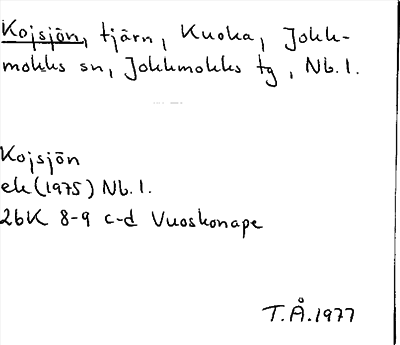 Kojsjön, tjärn, Kuoka, Jokk-
mokks sn, Jokkmokks tg, Nb.l.
Kojsjön
ek (1975) Nb.l.
26K 8-9 c-d Vuoskonape
T.Å.1977